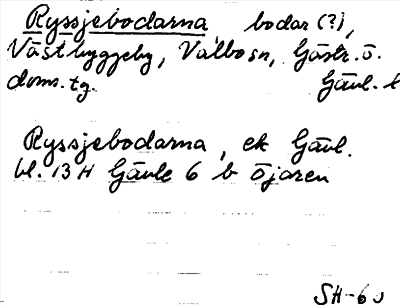 Ryssjebodarna, bodar (?),
Västbyggeby, Valbo sn, Gästr. ö.
doms. tg. Gävl. l
Ryssjebodarna, ek Gävl.
bl. 13 H Gävle 6 b Öjaren
SH-60